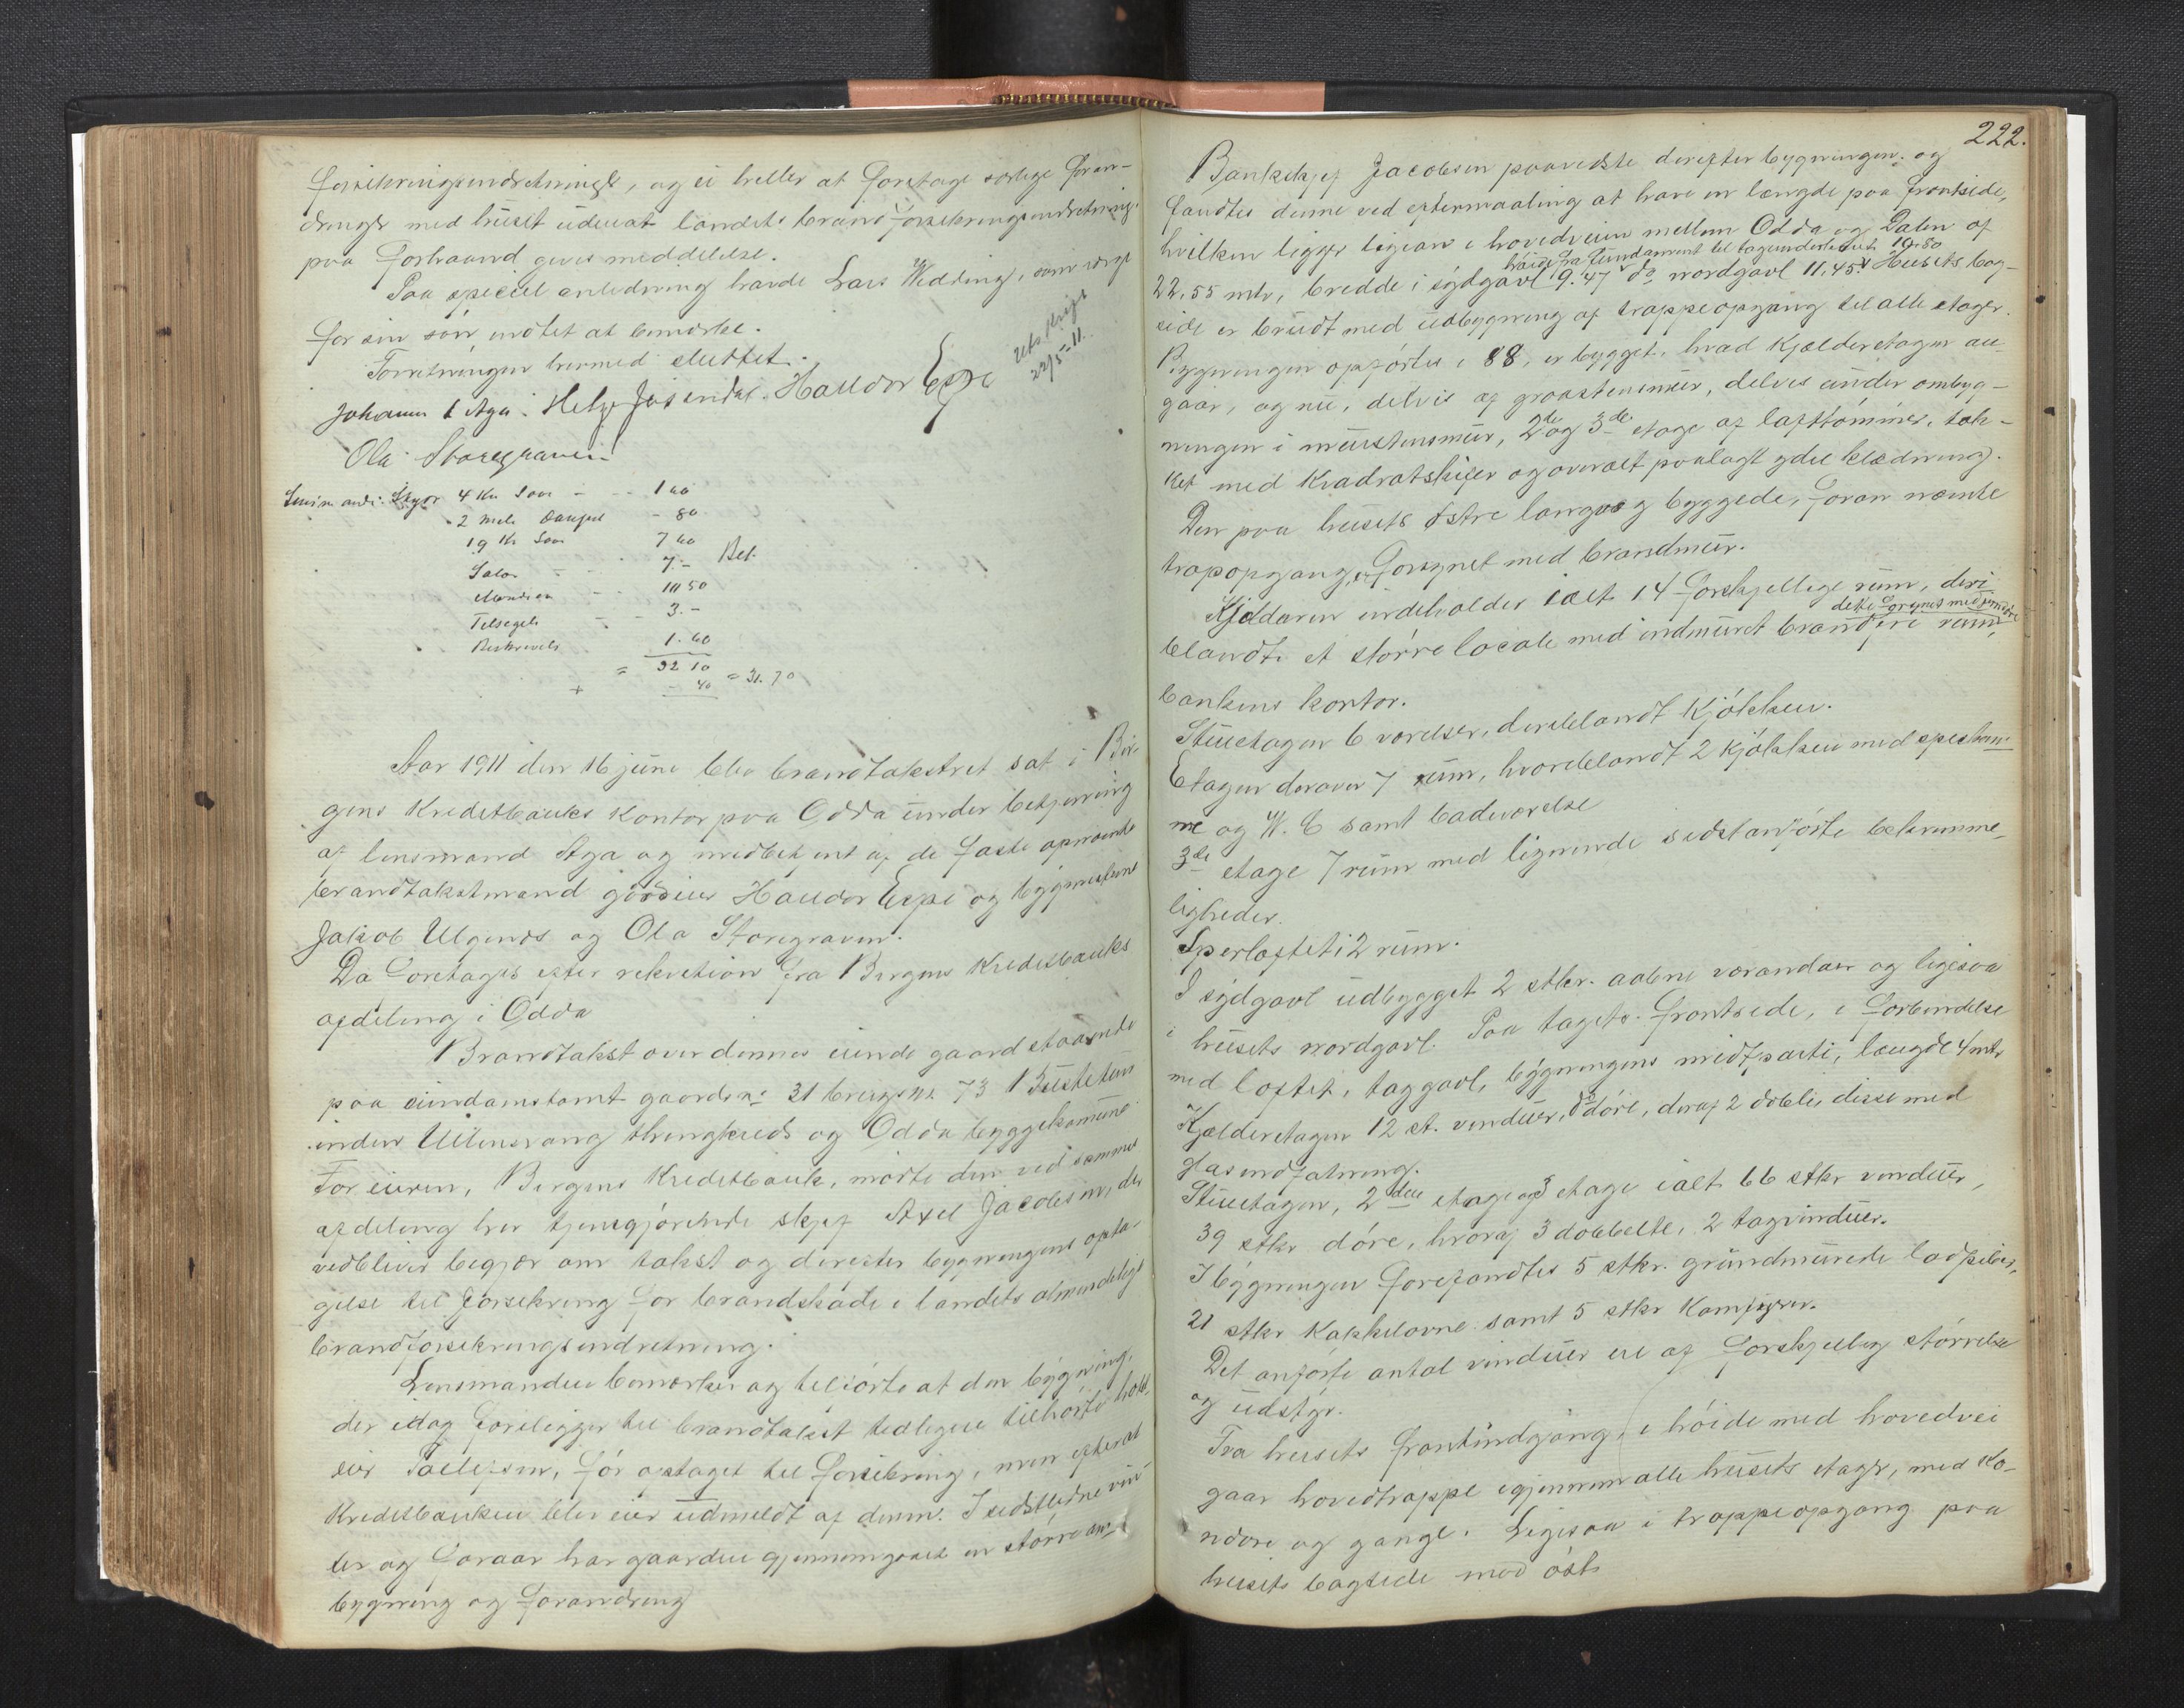 forsikringsindretningk, og ei heller at foretage særlige foran-
dringr med huset udenat landets brandforsikringsindretning
paa forhaand gives meddelelse.
Paa speciel anledning havde Lars Wedding, som værge
for sin søn intet at bemærke.
Forretningen hermed sluttet.
Johannes L Aga. Helge Jøsendal. Halldor Espe
Ola Storegraven
Uts. Krigt
22/5-11.
4 Km
1 60
2
- 80
19 Km
7 60
7.- Bet.
3.-
1.60
= 32 10
- 40 = 31.70
Aar 1911 den 16 june blev brandtakstret sat i Ber-
gens Kreditbanks kontor paa Odda under betjening
af lensmand Aga og medbetjent af de faste opnævnte
brandtakstmænd gårdeier Halldor Espe og bygmesterne
Jakob Ulgenes og Ola Storegraven.
Da foretages efter rekvition fra Bergens Kreditbanks
afdeling i Odda
Brandtakst over dennes eiende gaard staaende
paa eiendamstomt gaardsn: 31 brugsn. 73 Bustetun
inden Ullensvang thingkreds og Odda byggekomune
For eieren, Bergens Kreditbank, mødte den ved samme
afdeling her tjenesgjørende skjef Axel Jacobsen, der
vedbliver begjær om takst og derefter bygningens opta-
gelse til forsikring for brandskade i landets almindelige
brandforsikringsindretning.
Lensmanden bemærker og tilførte at den bygning,
der idag foreligger til brandtakst tidligere tilhørte hotel
eier Tollefsen, før optaget til forsikring, men efterat
Kreditbanken blev eier udmeldt af denne. I sidstledne vin-
ter og foraar har gaarden gjennemgaaet en større om-
bygning og forandring
222.
Bankskjef Jacobsen paaviste derefter bygningen og
fandtes denne ved eftermaaling at have en længde paa frontside,
hvilken ligger ligean i hovedveien mellem Odda og Dalen af
høide fra fundament til tagunderkant 10.80
22.55 mtr, bredde i sydgavl 9.47 do nordgavl 11.45. Husets bag-
side er brudt med udbygning af trappeopgang til alle etager.
Bygningen opførtes i 88, er bygget, hvad kjælderetagen an-
gaar, og nu, delvis af graastensmur, delvis under ombyg-
ningen i murstensmur, 2de og 3de etage af lafttømmer, tæk-
ket med kvadratskifer og overalt paalagt ydel klædning.
Den paa husets østre langvæg byggede, foran nævnte
trapopgang, er forsynet med brandmur.
Kjelderen indeholder ialt 14 forskjellige rum, deri
dette forsynet med jerndøre
blandt et større locale med indmuret brandfri rum,
bankens kontor.
Stueetagen 6 værelser, deriblandt kjøkken.
Etagen derover 7 rum, hvoriblandt 2 kjøkken med speskam-
me og W. C samt badeværelse
3de etage 7 rum med lignende sidstanførte bekvemme-
ligheder.
Sperloftet i 2 rum.
I sydgavl udbygget 2 stkr. aabne verandaer og ligesaa
i husets nordgavl. Paa tagets frontside, i forbindelse
med loftet, taggavl, bygningens midtparti, længde 4 mtr
Kjelderetagen 12 st. vinduer, 8 døre, deraf 2 doble, disse med
glasindfatning.
Stueetagen, 2den etage og 3 etage ialt 66 stkr vinduer,
39 stkr døre, hvoraf 3 dobbelte, 2 tagvinduer.
I bygningen forefandtes 5 stkr. grundmurede lodpiber,
21 stkr kakkelovne samt 5 stkr komfyrer.
Det anførte antal vinduer ere af forskjellig størrelse
og udstyr.
Fra husets frontindgang i høide med hovedvei
gaar hovedtrappe igjennem alle husets etager, med ko-
ridore og gange. Ligesaa i trappeopgang paa
husets bagside mod øst